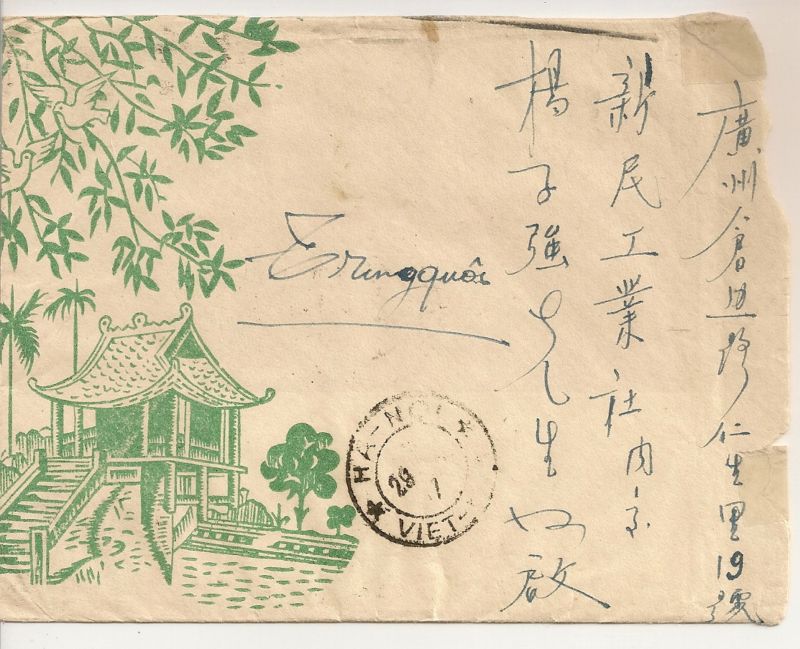 廣州倉边路仁生里19號
新民工業社内交
楊子強先生 啟
Trungquôc
HA-NOI
29 1
VIET-